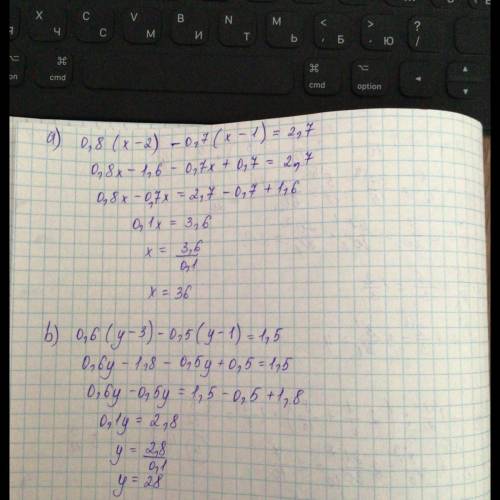 X C V B N M < >
Я Ч С М И Т Ь , Б . Ю ? /
⌘ ⌘ ⌥
cmd cmd option
a) 0,8 (x-2) - 0,7 (x-1) = 2,7
0,8x - 1,6 - 0,7x + 0,7 = 2,7
0,8x - 0,7x = 2,7 - 0,7 + 1,6
0,1x = 3,6
x = 3,6/0,1
x = 36
b) 0,6 (y-3) - 0,5 (y-1) = 1,5
0,6y - 1,8 - 0,5y + 0,5 = 1,5
0,6y - 0,5y = 1,5 - 0,5 + 1,8
0,1y = 2,8
y = 2,8/0,1
y = 28